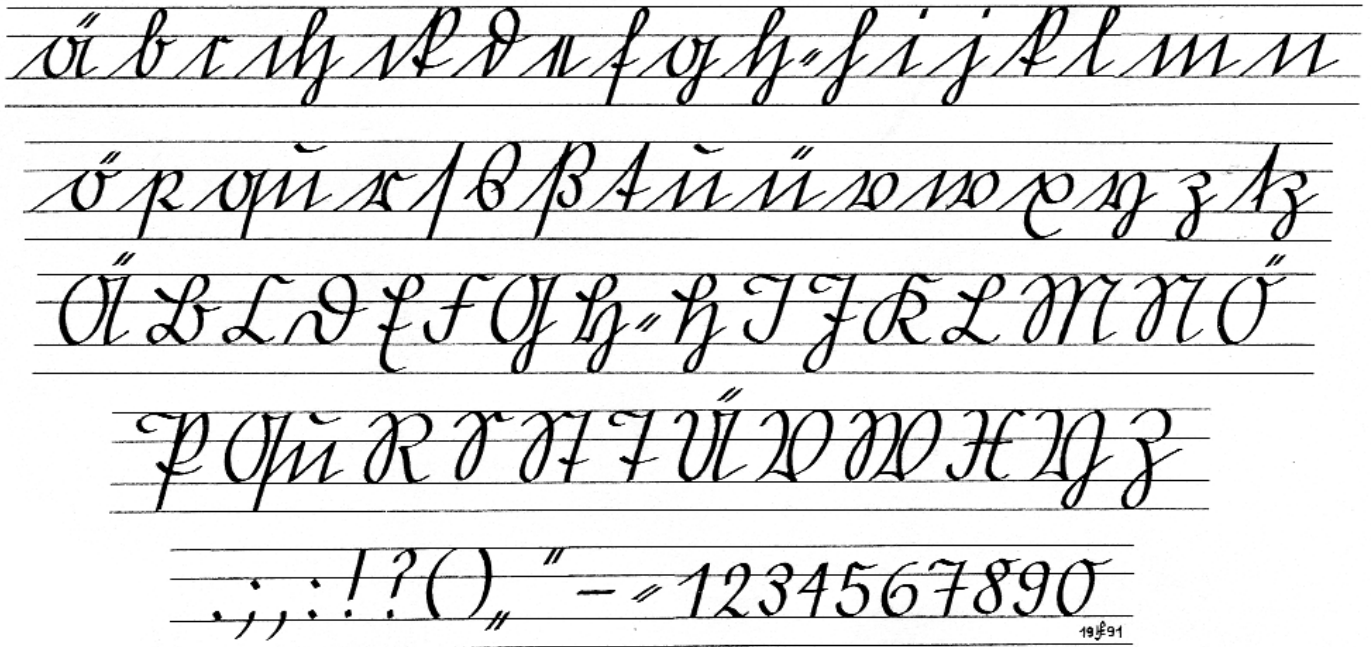 ä b c ch ck d e f g h⸗h i j k l m n
ö p qu r ſ s ß t u ü v w x y z tz
Ä B C D E F G H⸗H I J K L M N Ö
P Qu R S St T Ü V W X Y Z
. ; , : ! ? ( ) „ “ – ⸗ 1234567890
19 91